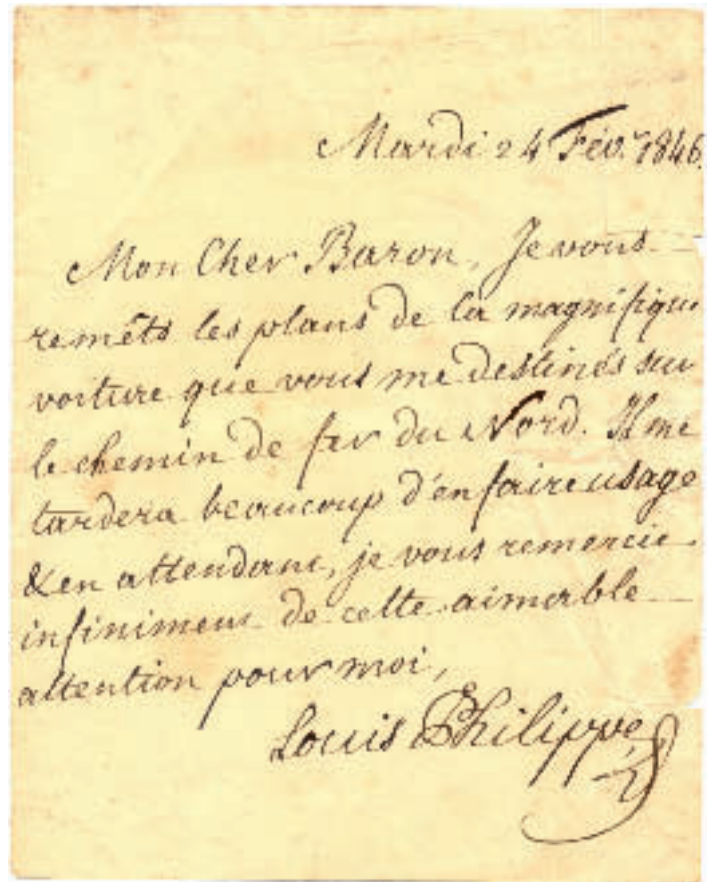 Mardi 24 Fév.r 1846.
Mon Cher Baron, Je vous
remêts les plans de la magnifique
voiture que vous me destinés sur
le chemin de fer du Nord. Il me
tardera beaucoup d'en faire usage
& en attendant, je vous remercie
infiniment de cette aimable
attention pour moi,
Louis Philippe